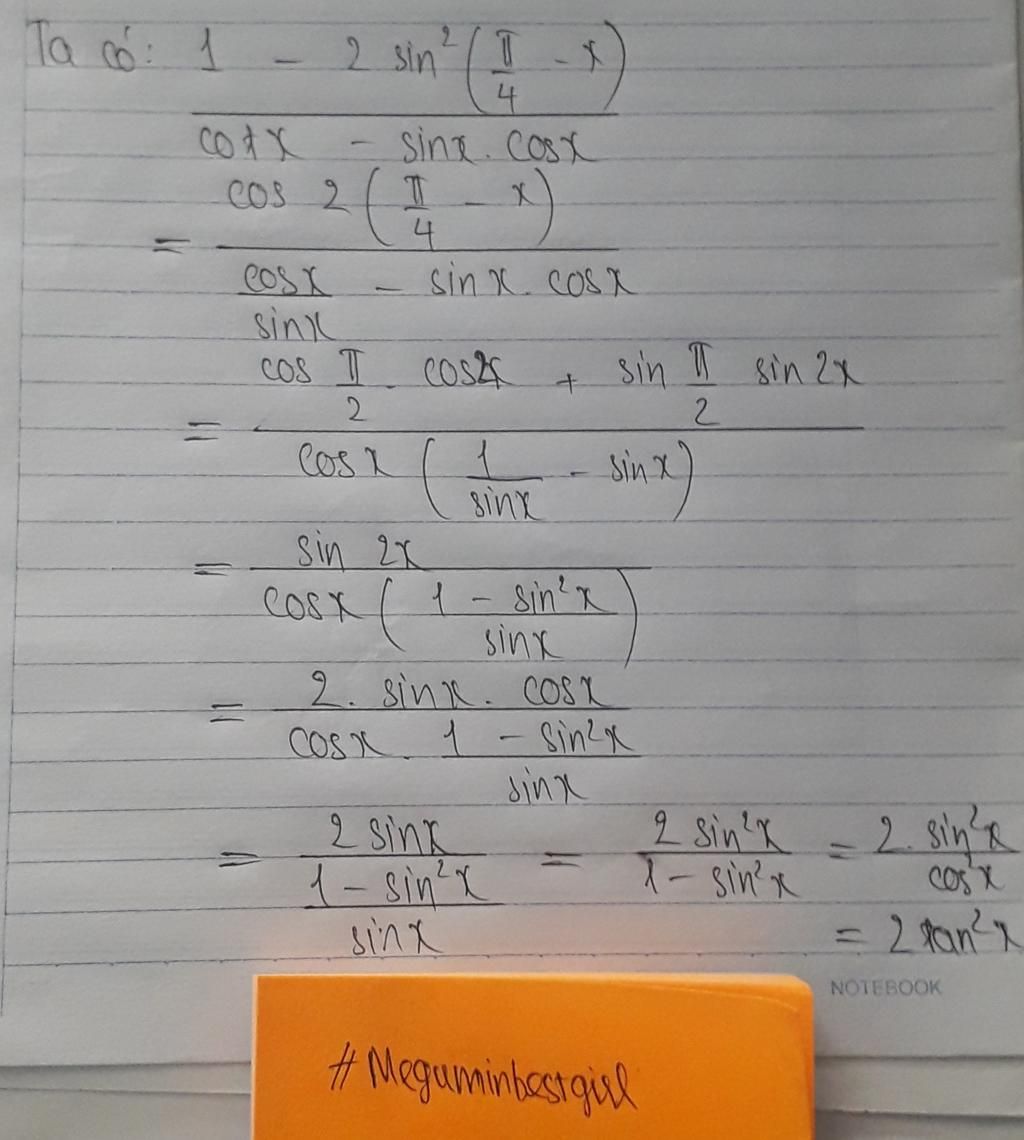 Ta có: 1 - 2 sin²(π/4 - x)
cotx - sinx. cosx
cos 2 (π/4 - x)
=
cosx/sinx - sinx. cosx
cos π/2 . cos2x + sin π/2 sin 2x
=
cosx (1/sinx - sinx)
= sin 2x
cosx (1 - sin²x / sinx)
= 2. sinx. cosx
cosx . 1 - sin²x / sinx
= 2 sinx / (1 - sin²x / sinx) = 2 sin²x / 1 - sin²x = 2. sin²x / cos²x
= 2 tan²x
NOTEBOOK
#Meguminbestgirl